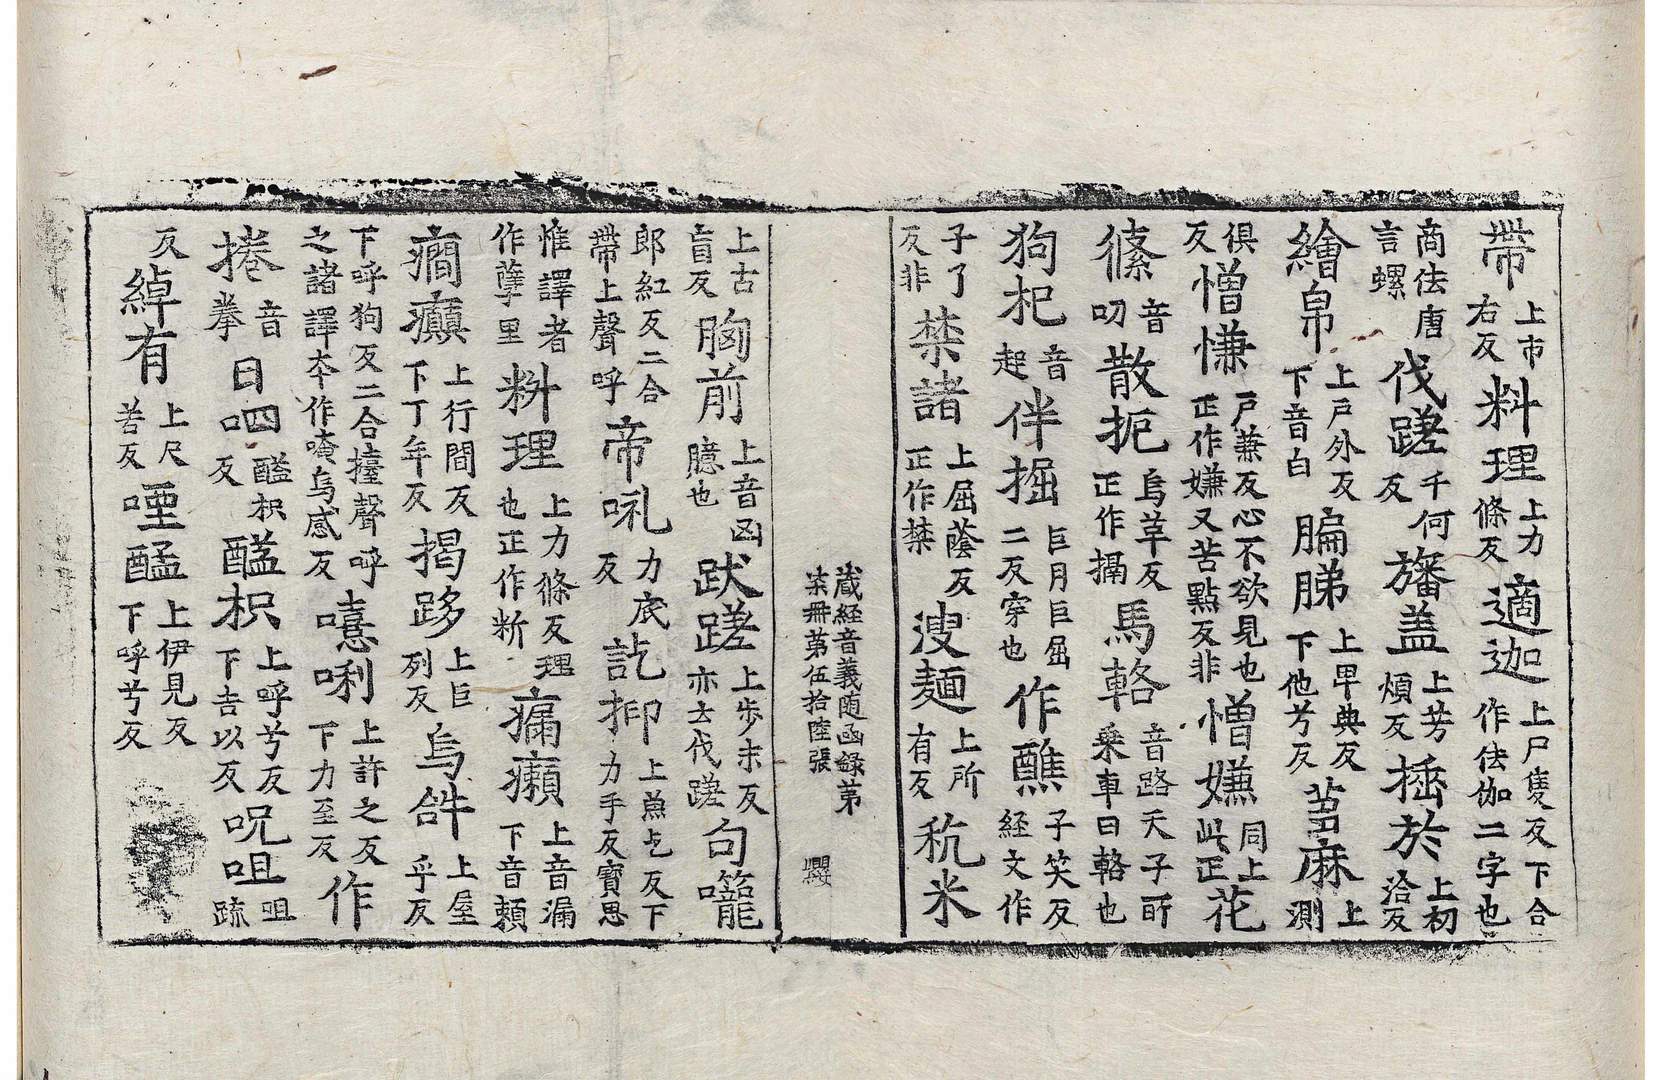 帶上市右反料理上力條反適迦上尸隻反下合作佉伽二字也
商佉唐言螺伐蹉千何反旛蓋上芳煩反插於上初洽反
繪帛上戸外反下音白騗䏲上卑典反下他兮反莒麻上測
俱反憎慊戸兼反心不欲見也正作嫌又苦點反非憎嫌同上此正花
絛音叨散扼烏革反正作搹馬輅音路天子所乗車曰輅也
狗杞音起伴掘巨月巨屈二反穿也作醮子笑反経文作
子了反非禁諸上屈蔭反正作禁溲麵上所有反秔米
蔵経音義随函録第柒冊第伍拾陸張 纓
上古盲反胸前上音凶臆也跋蹉上歩末反亦云伐蹉句嚨
郎紅反二合帶上聲呼帝力底反訖上魚乞反下力手反寶思
惟譯者作孽里料理上力條反理也正作断癩上音漏下音頼
癎癲上行間反下丁年反揭跢上巨列反烏上屋乎反
下呼狗反二合擡聲呼之諸譯夲作唵烏感反嘻唎上許之反下力至反作
捲音拳日呬醯枳反醯枳上呼兮反下吉以反呪咀咀䟽
反綽有上尺若反醯上伊見反下呼兮反